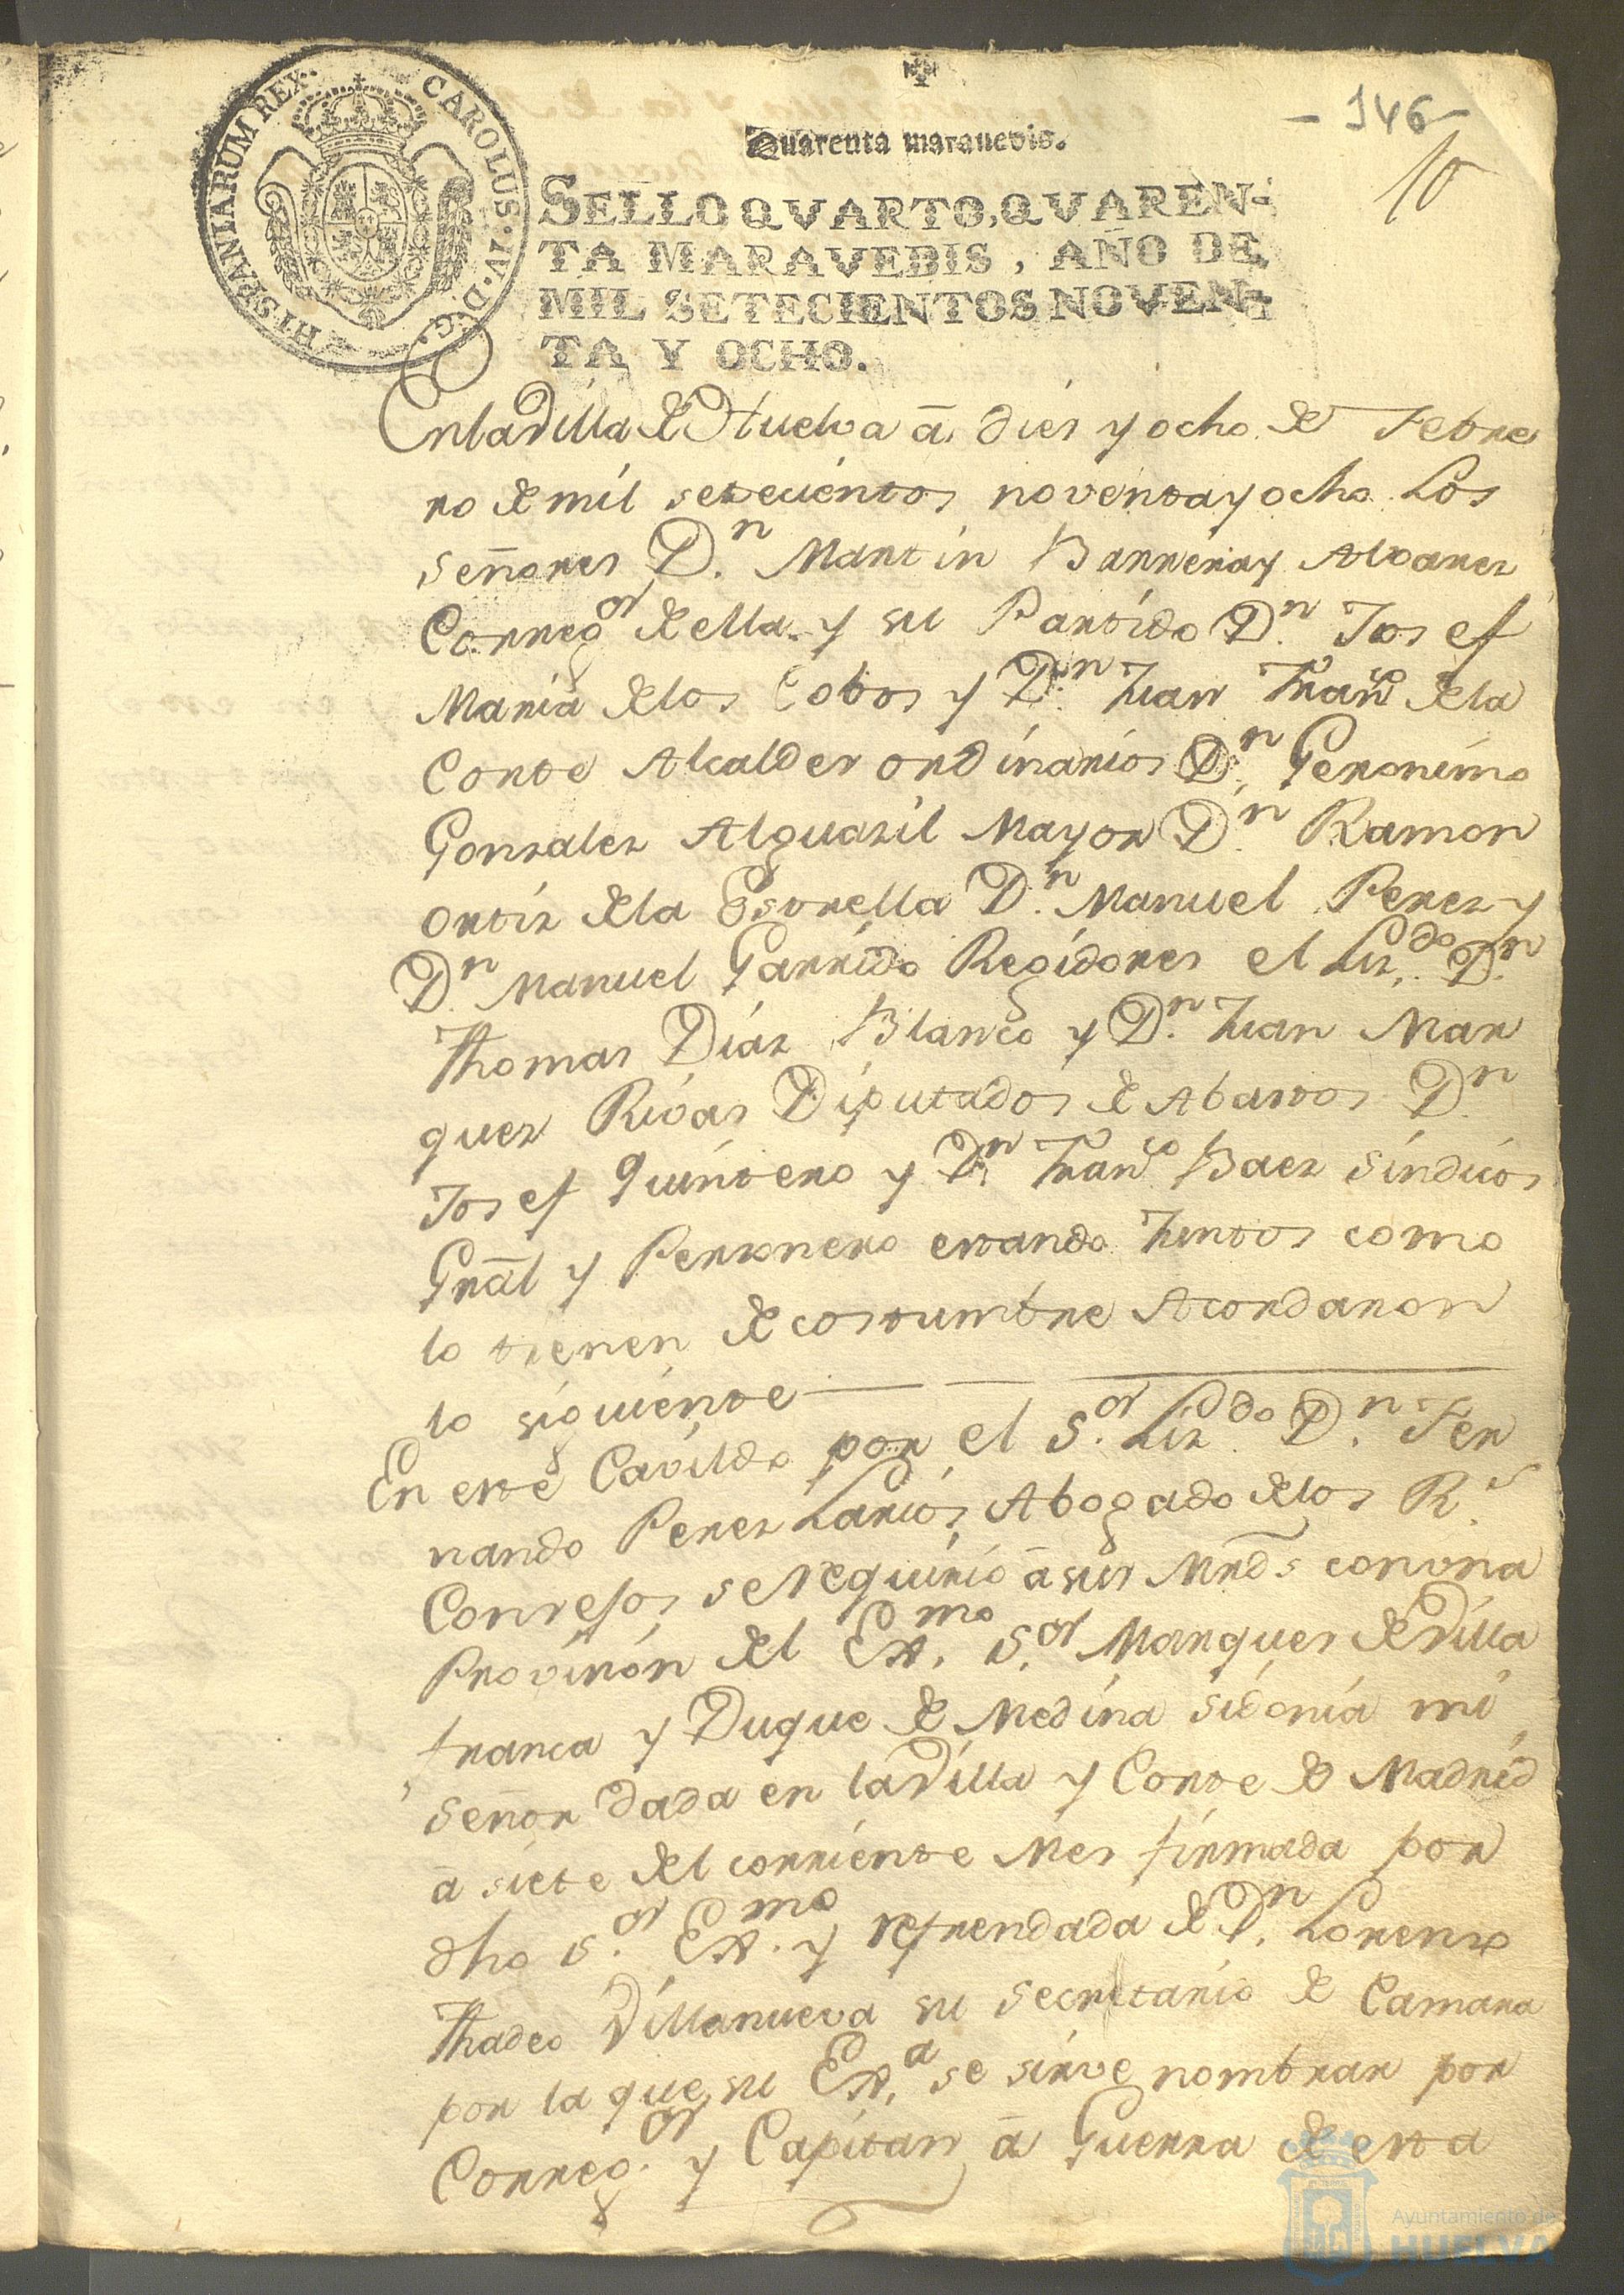 - 146 -
10
Quarenta maravedis.
HISPANIARUM REX. CAROLUS. IV. D. G.
SELLO QVARTO, QVAREN-
TA MARAVEDIS, AÑO DE
MIL SETECIENTOS NOVEN-
TA Y OCHO.
En la Villa de Huelva ā dies y ocho de Febre
ro de mil setecientos noventa y ocho Los
señores D.n Martin Barrera y Alvares
Correg.or de ella y su Partido D.n Josef
Maria de los Cobos y D.n Juan Fran.co de la
Corte Alcaldes ordinarios D.n Geronimo
Gonzalez Alguasil Mayor D.n Ramon
ortiz de la Estrella D.n Manuel Perez y
D.n Manuel Garrido Regidores el Liz.do D.n
Thomas Diaz Blanco y D.n Juan Mar
quez Rivas Diputados de Abastos D.n
Josef Quintero y D.n Fran.co Baez Sindicos
Grāl y Personero estando Juntos como
lo tienen de costumbre Acordaron
lo siguiente
En este Cavildo por el S.or Liz.do D.n Fer
nando Perez Larios Abogado de los R.s
Consejos se requirió ā sus Mrds con una
Provision del Ex.mo S.or Marques de Villa
franca y Duque de Medina Sidonia mi
señor dada en la Villa y Corte de Madrid
ā siete del corriente Mes firmada por
dho S.or Ex.mo y refrendada de D.n Lorenzo
Thadeo Villanueva su secretario de Camara
por la que su Ex.a se sirve nombrar por
Correg.or y Capitan ā Guerra de esta
Ayuntamiento de
HUELVA